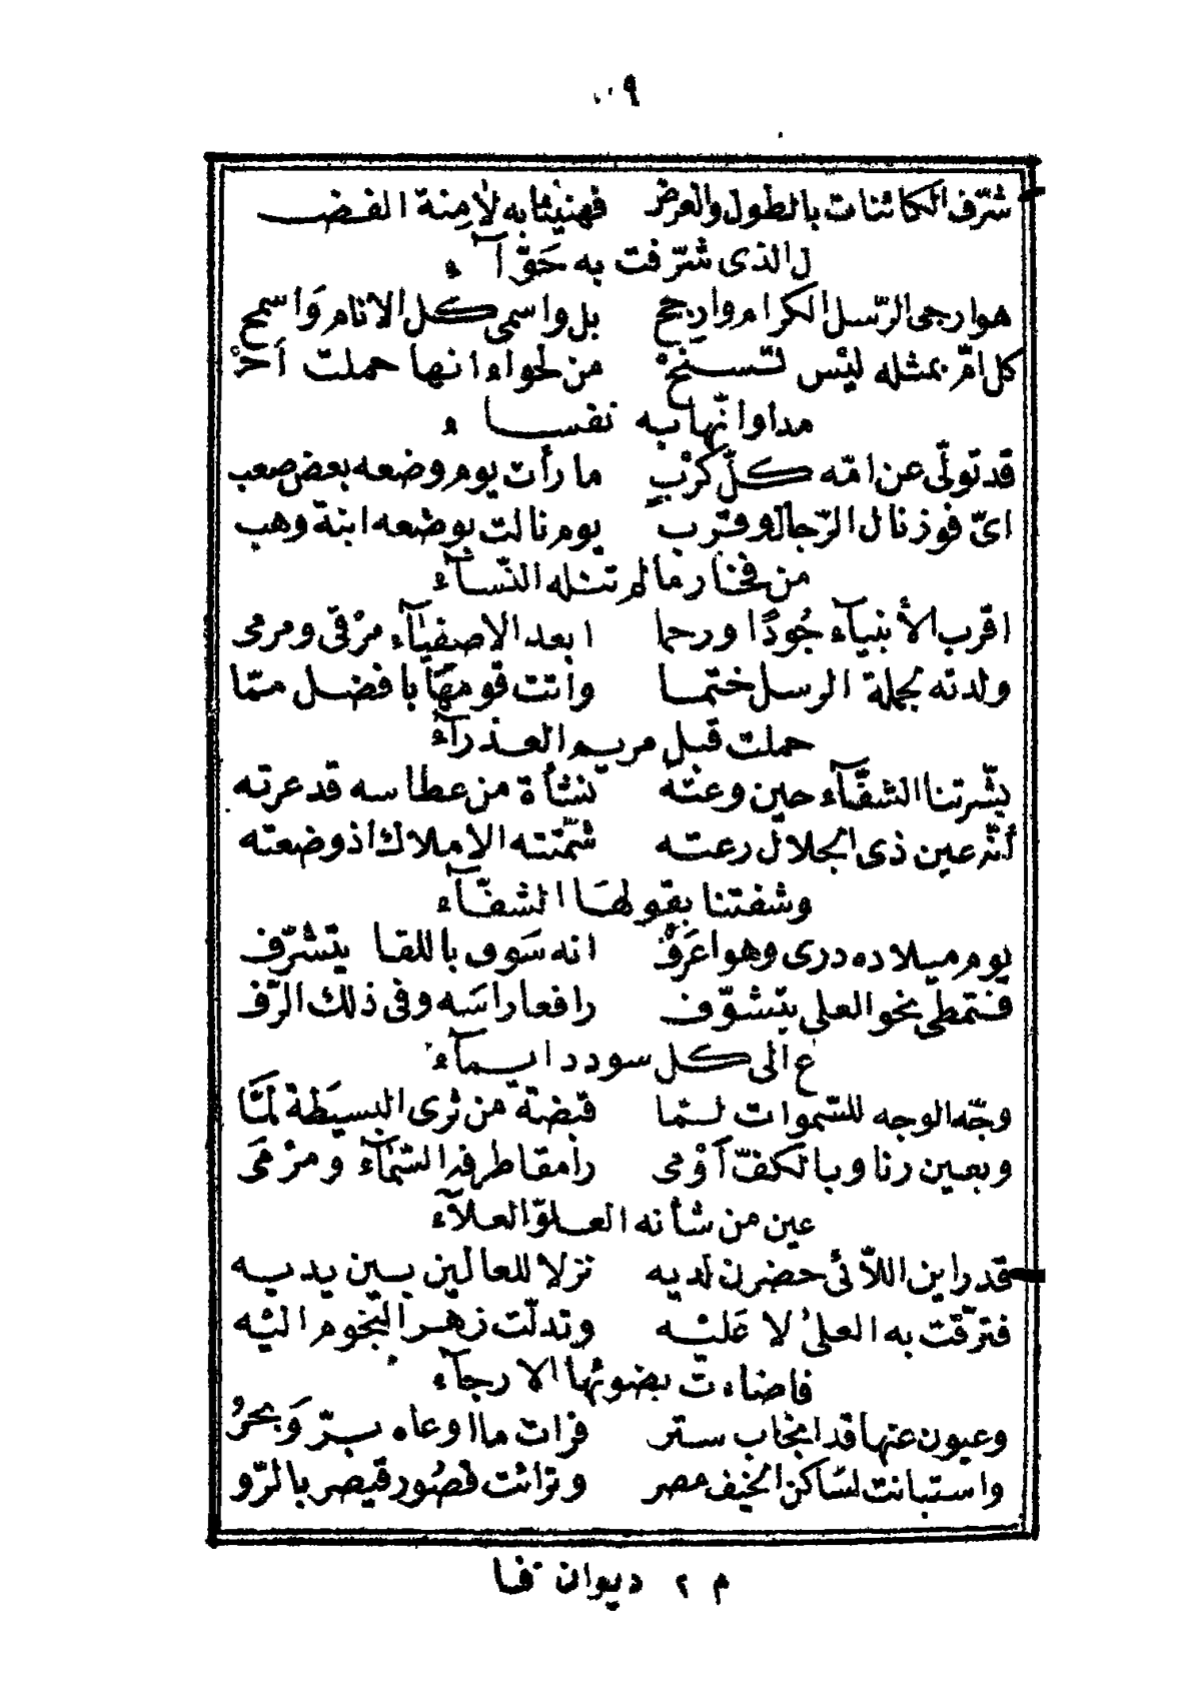 ٩
شرّف الكائنات بالطول والعرض فهنيئا به لآمنة الفضـ
ل الذى شرّفت به حَوّآء
هو ارجى الرّسل الكرام وارجح بل واسمى كل الانام وَأسمح
كل امّ بمثله ليْس تسنحْ من لحواء انها حملت أحْـ
مدا وانّها به نفساء
قد تولّى عن امّه كلّ كرْبٍ ما رأت يوم وضعه بعض صعب
اىّ فوز نال الرّجال وقرب يوم نالت بوضعه ابنة وهب
من فخار ما لم تنله النّسآء
اقرب الأنبيآء جُودًا ورحما ابعد الاصفيآء مرْقى ومرمى
ولدته لجملة الرسل ختما وأتت قومهَا بافضل ممّا
حملت قبل مريم العذرآء
بشّرتنا الشفّآء حين وعته نشأة من عطاسه قد عرته
أنّه عين ذى الجلال رعته شمّتته الاملاك أذ وضعته
وشفتنا بقولهَا الشفّآء
يوم ميلاده درى وهو اعَرفْ انه سَوف باللقا يتشرّف
فتمطى نحو العلى يتشوّف رافعا راسَه وفى ذلك الرّفـ
ع الى كل سودد ايمآء
وجّه الوجه للسّموات لمّا قبْضة من ثرى البسيَطة لمَّا
وبعين رنا وبالكفّ أوْمى رامقا طرفه السّمآء ومرْمَى
عين من شأنه العلوّ العلآء
قد راين اللاّئى حضرن لديه نزلا للعالين بين يديه
فترقّت به العلىُ لا عَليْه وتدلّت زهر النجوم اليْه
فاضاءت بضوئها الارجآء
وعيون عنها قد انجاب ستر فرات ما اوعاه برّ وَبحرُ
واستبانت لسَاكن الخيف مصر وترائت قصُور قيصر بالرّو
م ٢ ديوان فا